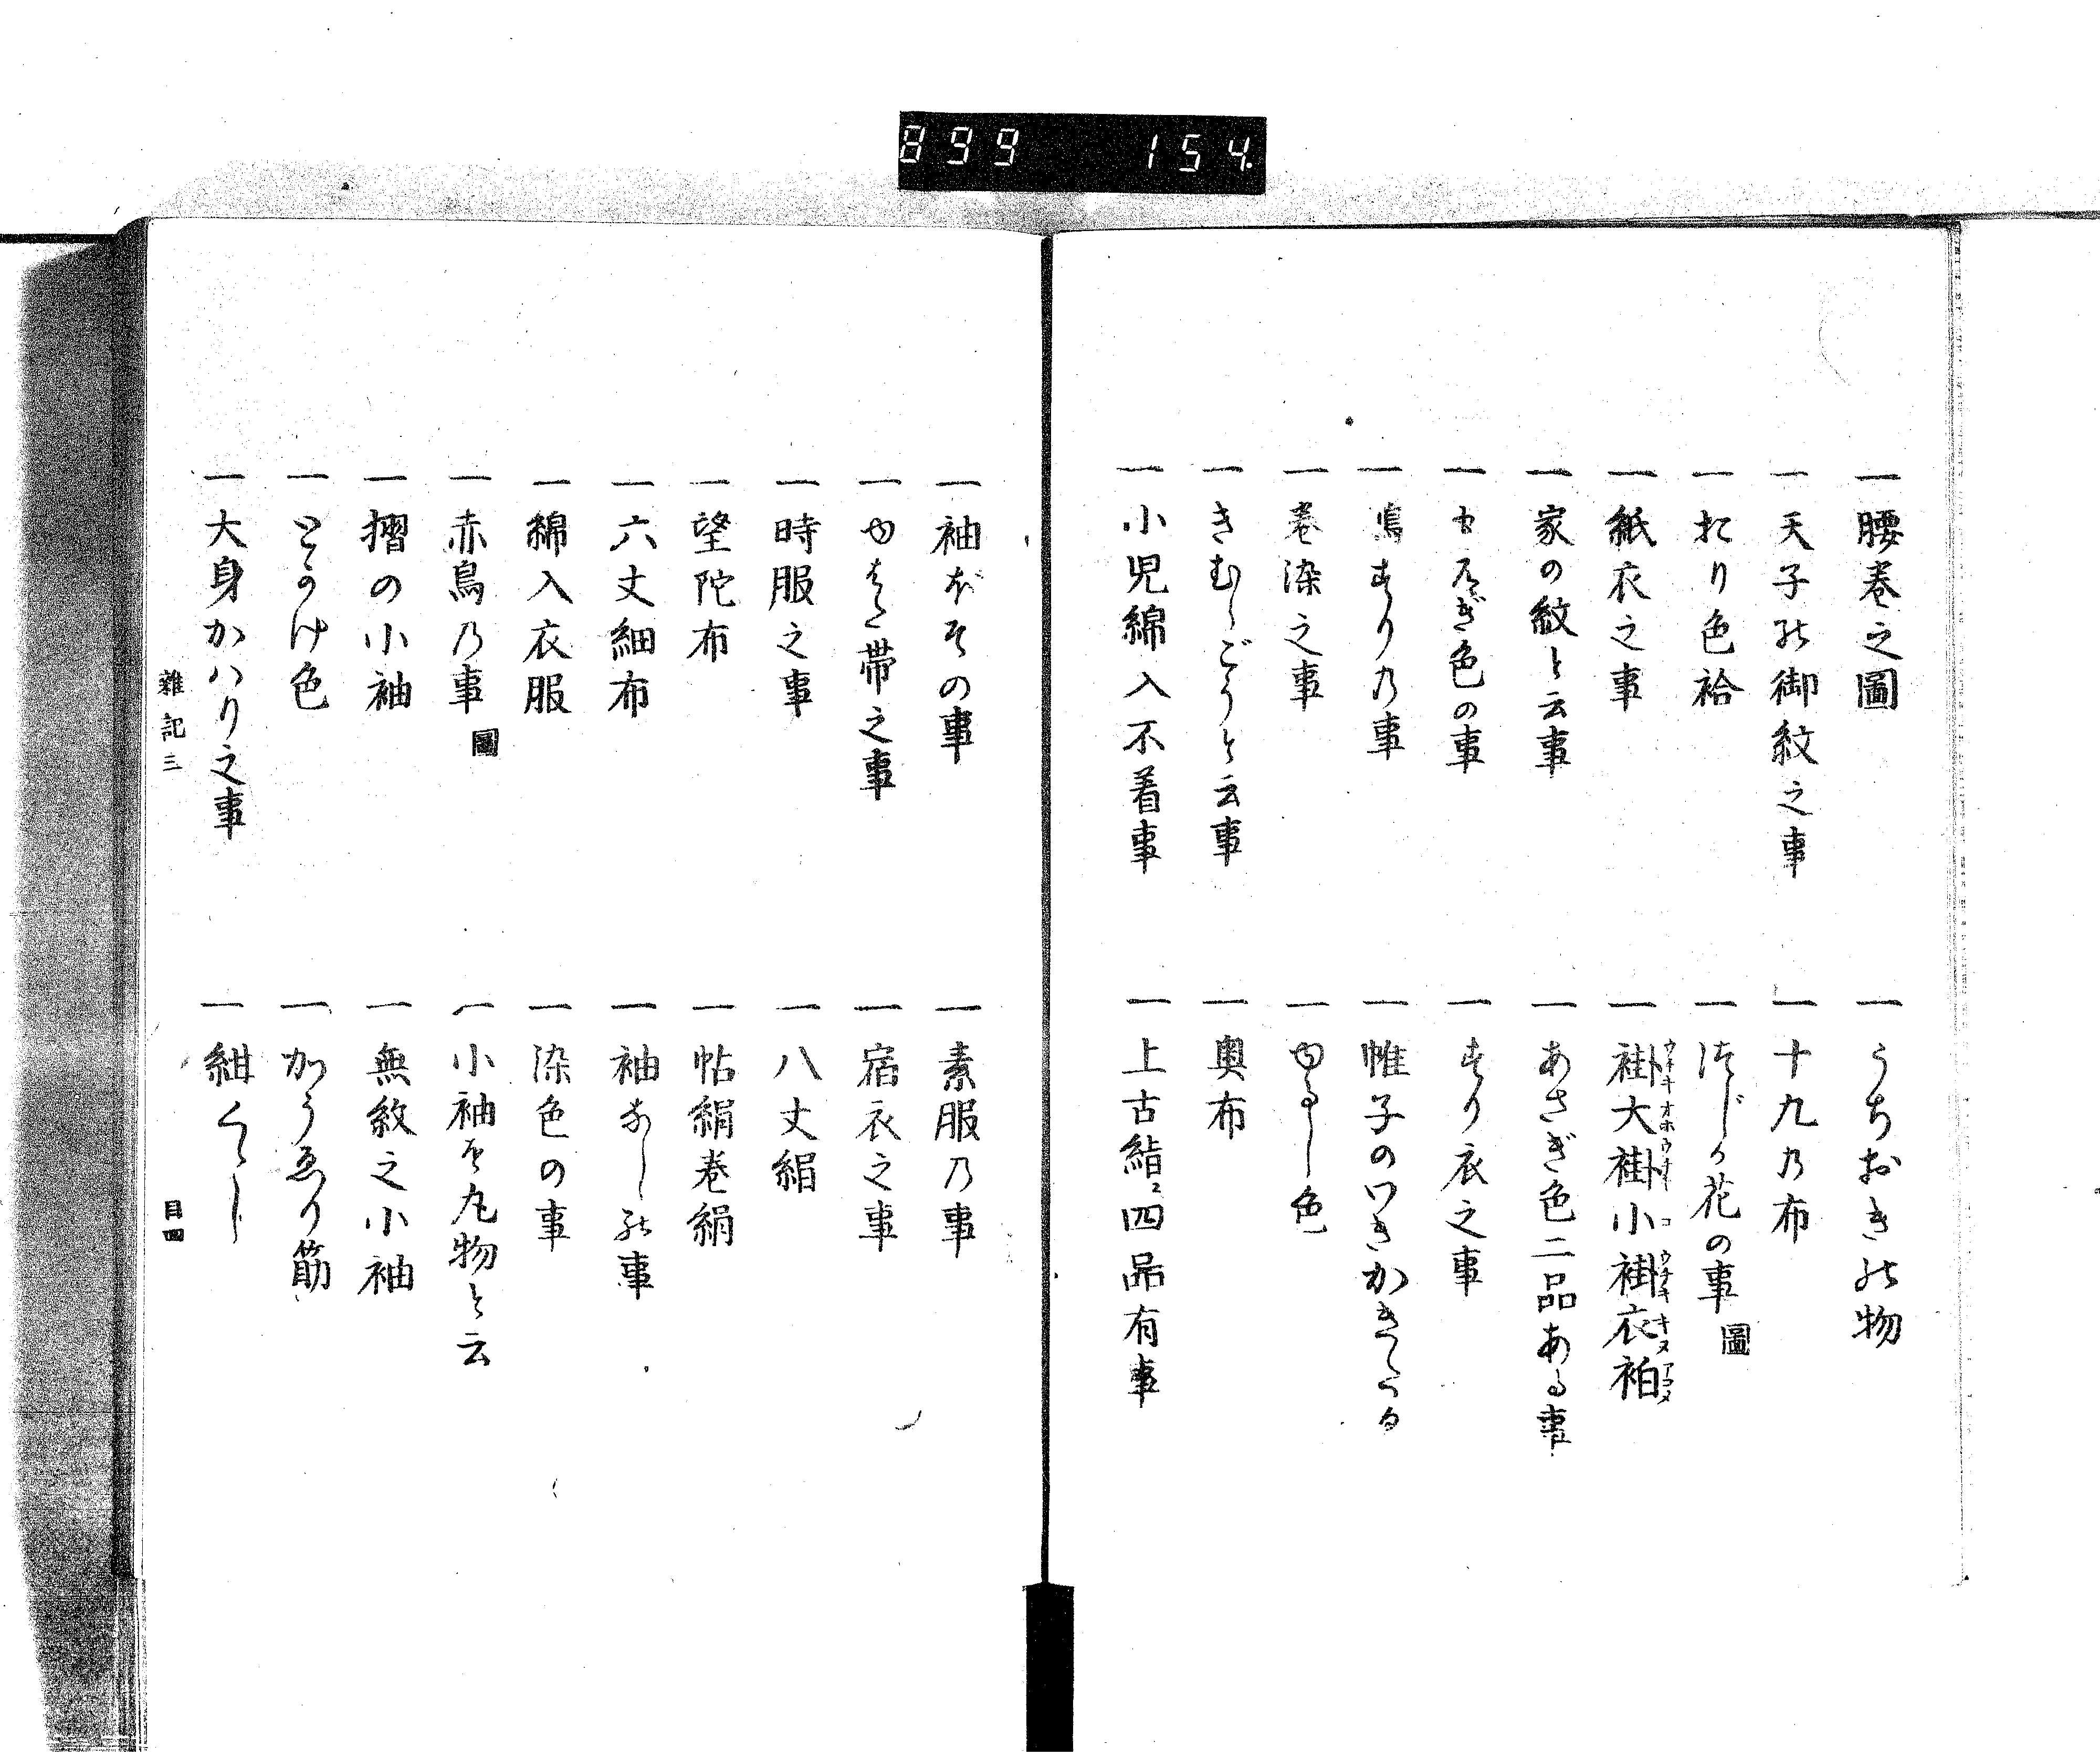 899 154.
一腰巻之圖
一うちおきの物
一天子の御紋之事
一十九乃布
一おり色袷
一つじが花の事 圖
一紙衣之事
一袿大袿小袿衣袙
一家の紋と云事
一あさぎ色二品ある事
一もえぎ色の事
一すり衣之事
一嶋すり乃事
一帷子のわきかき
一巻染之事
一ゆるし色
一きむらごうと云事
一奥布
一小児綿入不着事
一上古絬ニ四品有事
一袖ぼその事
一素服乃事
一ゆはた帯之事
一宿衣之事
一時服之事
一八丈絹
一望陀布
一帖絹巻絹
一六丈細布
一袖なしの事
一綿入衣服
一染色の事
一赤鳥乃事 圖
一小袖を丸物と云
一摺の小袖
一無紋之小袖
一とかけ色
一かうゑり筋
一大身かハり之事
一紺くゝし
雜記三
目四